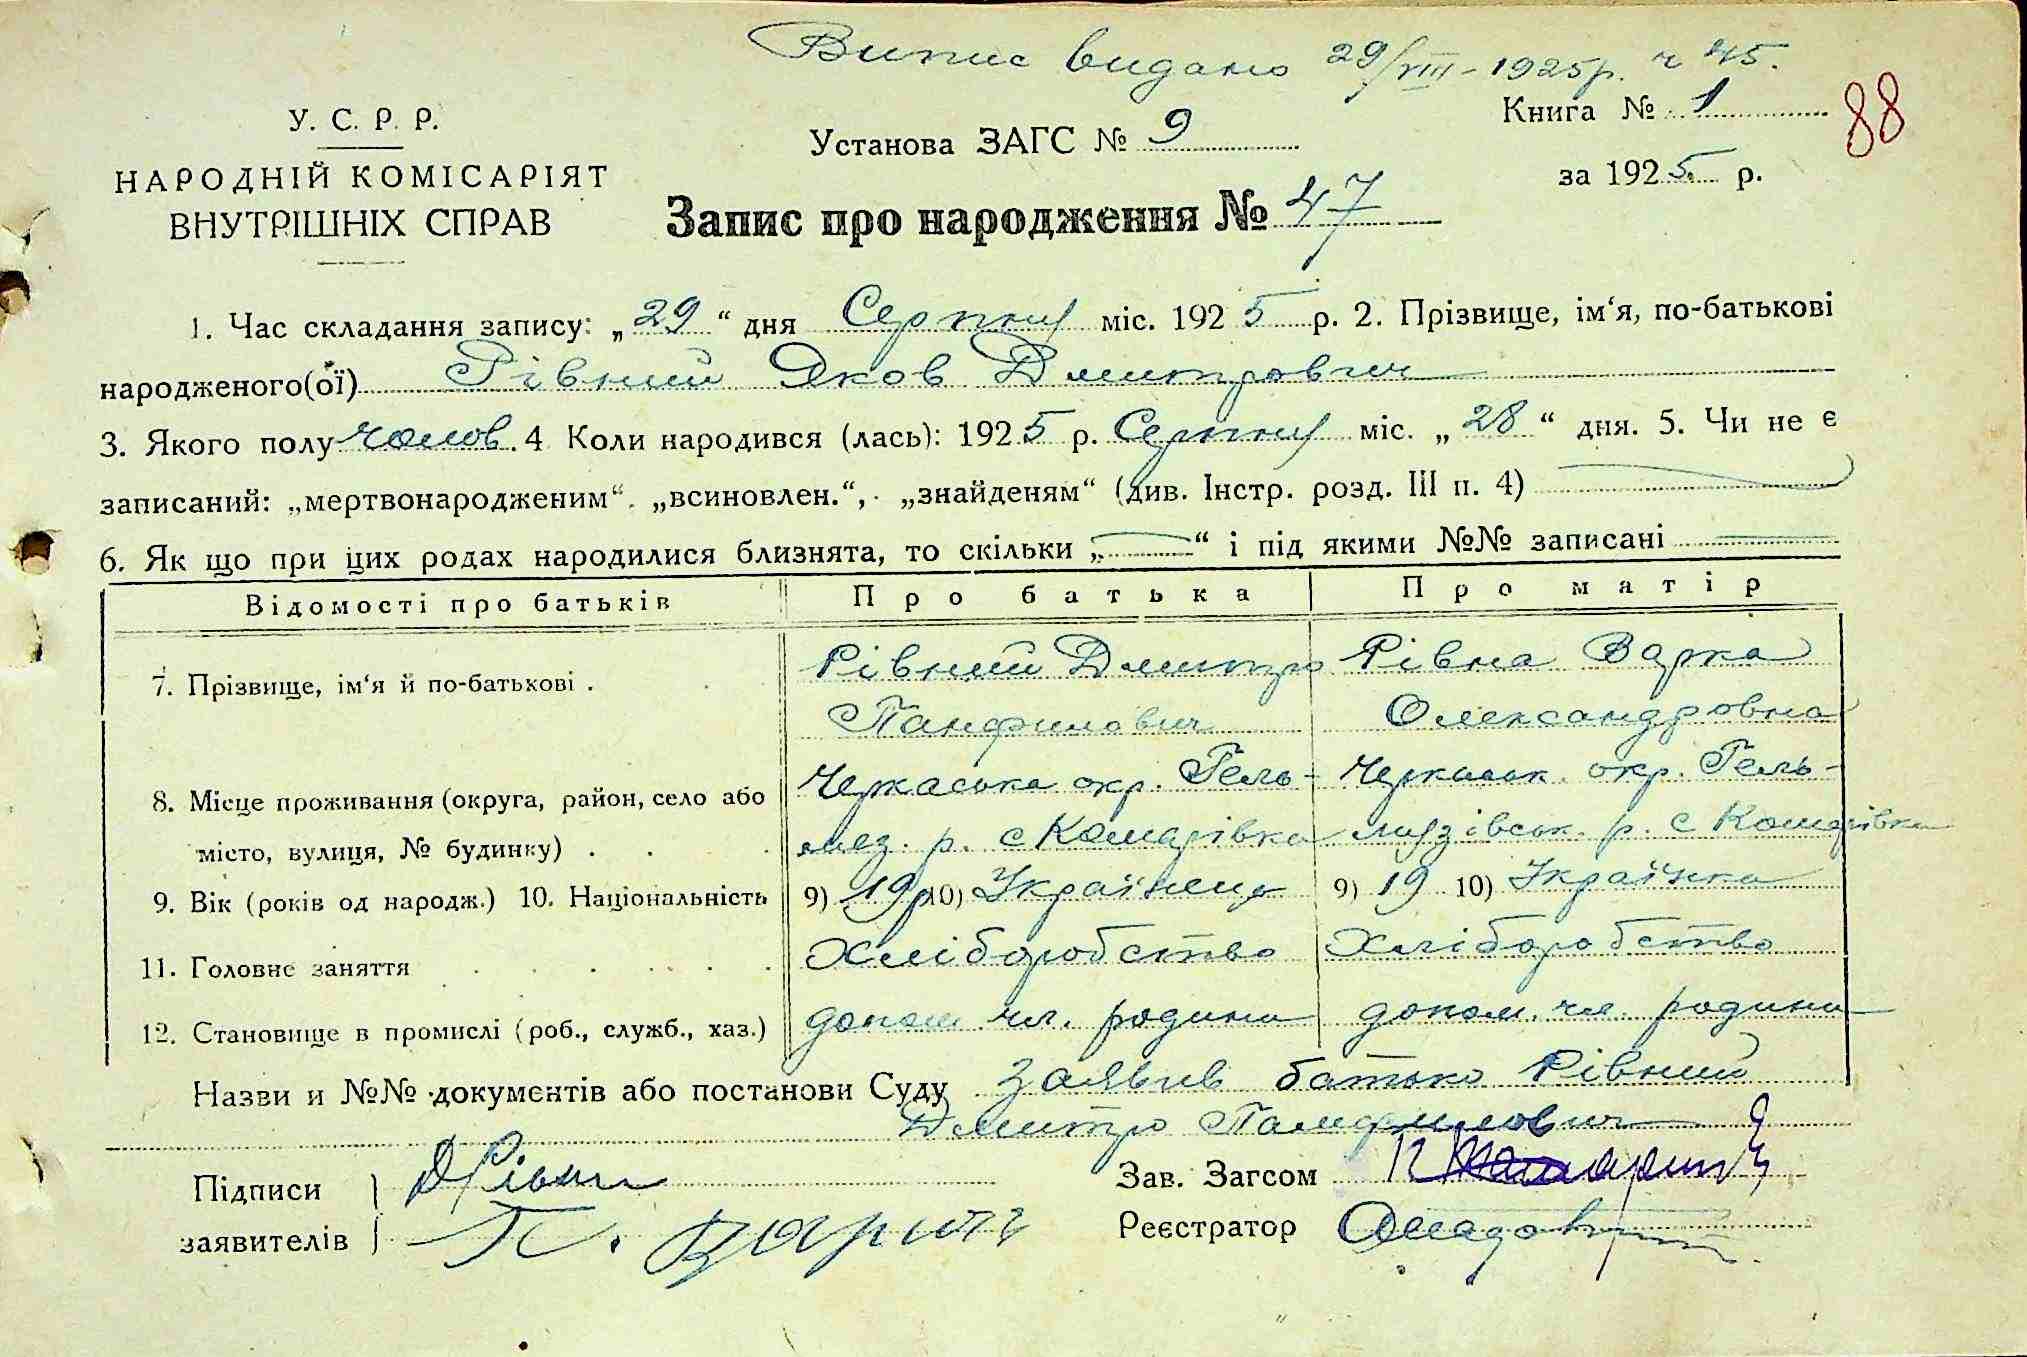 Випис видано 29/VIII-1925р. ч 45.
У. С. Р. Р.
НАРОДНІЙ КОМІСАРІЯТ
ВНУТРІШНІХ СПРАВ
Установа ЗАГС № 9
Книга № 1
88
за 1925 р.
Запис про народження № 47
1. Час складання запису: „29“ дня Серпня міс. 1925 р. 2. Прізвище, ім‘я, по-батькові
народженого(ої) Рівний Яков Дмитрович
3. Якого полу чолов. 4 Коли народився (лась): 1925 р. Серпня міс. „28“ дня. 5. Чи не є
записаний: „мертвонародженим“, „всиновлен.“, „знайденям“ (див. Інстр. розд. III п. 4)
6. Як що при цих родах народилися близнята, то скільки „—“ і під якими №№ записані —
Відомості про батьків Про батька Про матір
7. Прізвище, ім‘я й по-батькові . Рівний Дмитро Рівна Варка
Панфилович Олександровна
8. Місце проживання (округа, район, село або Черкаська окр. Гель- Черкаськ. окр. Гель-
місто, вулиця, № будинку) . мяз. р. с Комарівка мязівськ. р. с Комарівка
9. Вік (років од народж.) 10. Національність 9) 19р 10) Українець 9) 19 10) Українка
11. Головне заняття Хліборобство Хліборобство
12. Становище в промислі (роб., служб., хаз.) допом. чл. родини допом. чл. родини
Назви и №№ документів або постанови Суду Заявив батько Рівний
Дмитро Памфилович
Підписи Д Рівни Зав. Загсом
заявителів П. Реєстратор